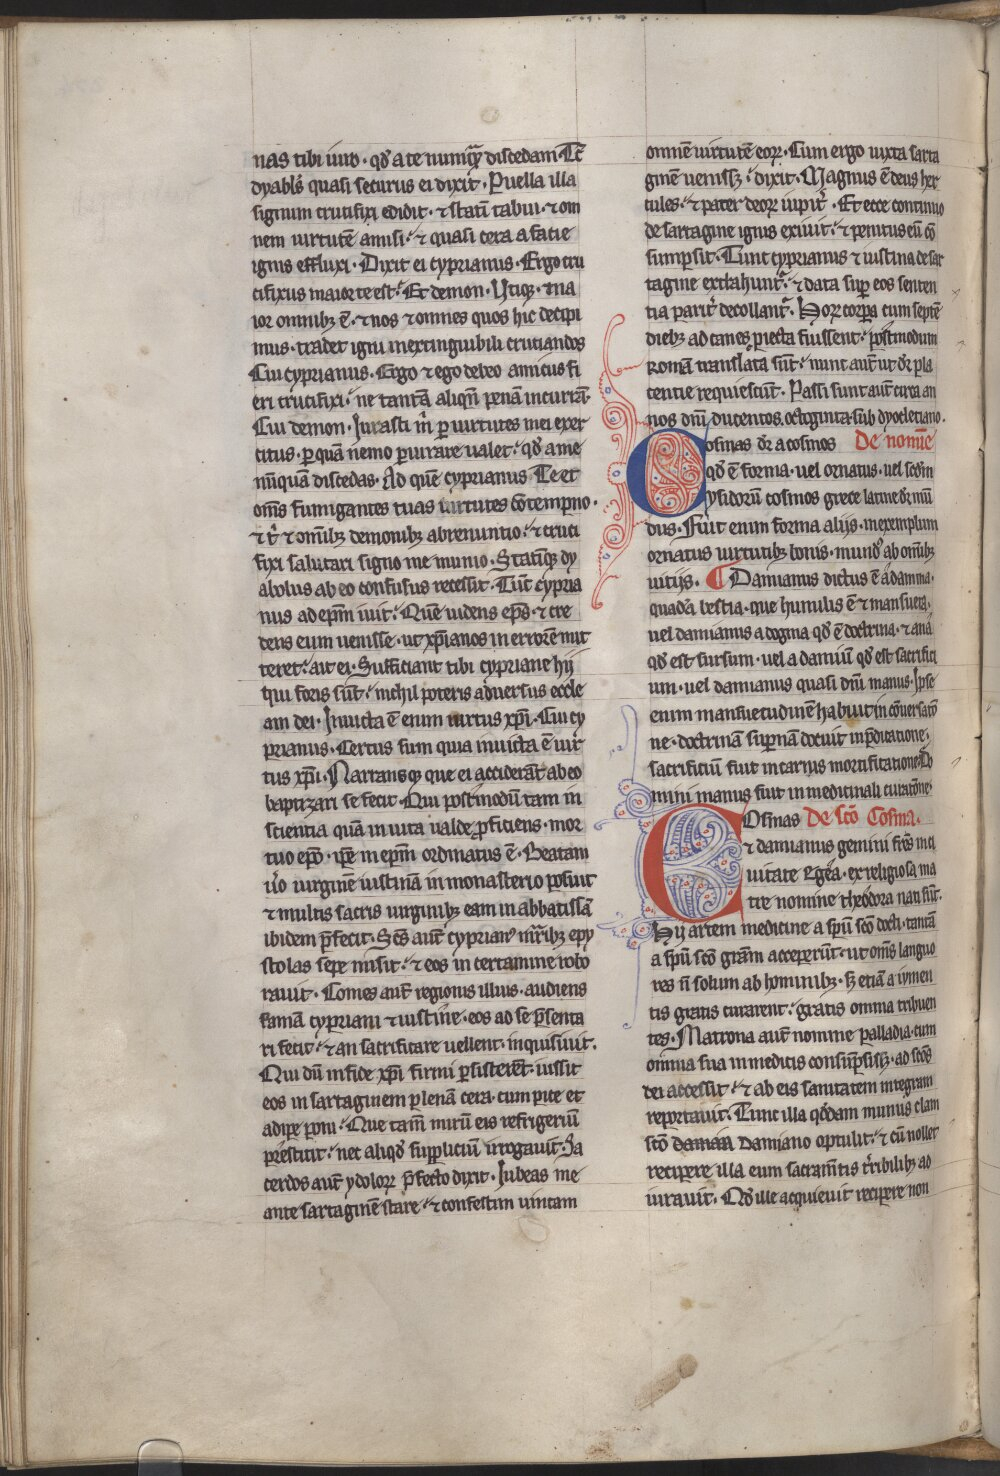 nas tibi iuro · qđ a te numꝗ̃ discedam Tc̃
dyabl̓s quasi securus ei dixit · Puella illa
signum crucifixi edidit · ⁊ statĩ tabui · ⁊ om
nem uirtutẽ amisi · ⁊ quasi cera a facie
ignis effluxi · Dixit ei cyprianus · Ergo cru
cifixus maior te est · Et demon · Vtiqꝫ · ma
ior omnibꝫ ẽ · ⁊ nos ⁊ omnes quos hic decipi
mus · tradet igni inextinguibili cruciandos
Cui cyprianus · Ergo ⁊ ego debeo amicus fi
eri crucifixi · ne tantã aliqñ penã incurrã ·
Cui demon · Iurasti m̃ ꝑ uirtutes mei exer
citus · ꝑ quã nemo ꝑiurare ualet · qđ a me
nũquã discedas · Ad quẽ cyprianus Te et
om̃s fumigantes tuas uirtutes cõtempno ·
⁊ t̓ ⁊ om̃ibꝫ demonibꝫ abrenuntio · ⁊ cruci
fixi salutari signo me munio · Statĩqꝫ dy
abolus ab eo confusus recessit · Tũc cypria
nus ad ep̃m iuit · Quẽ uidens ep̃s · ⁊ cre
dens eum uenisse · ut xp̃ianos in errorẽ mit
teret · ait ei · Sufficiant tibi cypriane hij
qui foris sũt · nichil poteris aduersus eccle
am dei · Inuicta ẽ enim uirtus xp̃i · Cui cy
prianus · Certus sum quia inuicta ẽ uir̓
tus xp̃i · Narransqꝫ que ei acciderãt ab eo
baptizari se fecit · Qui postmodũ tam in
scientia quã in uita ualde ꝓficiens · mor
tuo ep̃o · ip̃e in ep̃m ordinatus ẽ · Beatam
u̓o uirginẽ iustinã in monasterio posuit
⁊ multis sacris uirginibꝫ eam in abbatissã
ibidem p̃fecit · Sc̃s aut̃ cyprian᷒ mr̃ibꝫ epy
stolas sepe misit · ⁊ eos in certamine robo
rauit · Comes aut̃ regionis illius · audiens
famã cypriani ⁊ iustine · eos ad se p̃senta
ri fecit · ⁊ an sacrificare uellent · inquisiuit ·
Qui dũ in fide xp̃i firmi ꝑsisterẽt · iussit
eos in sartaginem plenã cera · cum pice et
adipe poni · Que tam̃ mirũ eis refrigeriũ
prestitit · nec aliqđ suppliciũ irrogauit · Sa
cerdos aut̃ ydoloꝝ p̃fecto dixit · Iubeas me
ante sartaginẽ stare · ⁊ confestim uincam
omnẽ uirtutẽ eoꝝ · Cum ergo iuxta sarta
ginẽ uenissꝫ · dixit · Magnus ẽ deus her
cules · ⁊ pater deoꝝ iupit̓ · Et ecce continuo
de sartagine ignis exiuit · ⁊ penitus eũ cõ
sumpsit · Tunc cyprianus ⁊ iustina de sar
tagine extrahunt̓ · ⁊ data suꝑ eos senten
tia parit̓ decollant̓ · Hoꝝ corpa cum septẽ
diebꝫ ad canes ꝓiecta fuissent · postmodum
Romã translata sũt · nunc aut̃ ut dr̃ pla
centie requiescũt · Passi sunt aut̃ circa an
nos dñi ducentos octoginta · sub dyocletiano ·
Cosmas dr̃ a cosmos De nomĩe
qđ ẽ forma · uel ornatus · uel scd̃m
ysidorũ cosmos grece latine dr̃ mũ
dus · Fuit enim forma alijs · in exemplum
ornatus uirtutibꝫ bonis · mund᷒ ab om̃ibꝫ
uitijs · ¶ Damianus dictus ẽ a damma ·
quadã bestia · que humilis ẽ ⁊ mansueta ·
uel damianus a dogma qđ ẽ doctrina · ⁊ ana
qđ est sursum · uel a damiũ qđ est sacrifici
um · uel damianus quasi dñi manus · Ipse
enim mansuetudinẽ habuit in cõuersatõ
ne · doctrinã sup̃nã docuit in p̃dicatione ·
sacrificiũ fuit in carnis mortificatione Do
mini manus fuit in medicinali curatõne ·
Cosmas De sc̃o Cosma ·
⁊ damianus gemini fr̃es in ci
uitate Egea · ex religiosa ma
tre nomine theodora nati sũt ·
Hij artem medicine a sp̃u sc̃o docti · tantã
a sp̃u sc̃o gr̃am acceperũt · ut om̃s languo
res ñ solum ab hominibꝫ · sꝫ etiã a iumen
tis gratis curarent · gratis omnia tribuen
tes · Matrona aut̃ nomine palladia · cum
omnia sua in medicis consũpsissꝫ · ad sc̃os
dei accessit · ⁊ ab eis sanitatem integram
reportauit · Tunc illa qđdam munus clam
sc̃o damiañ Damiano optulit · ⁊ cũ nollet
recipere illa eum sacram̃tis t̓ribilibꝫ ad
iurauit · Qđ ille acquieuit recipere non